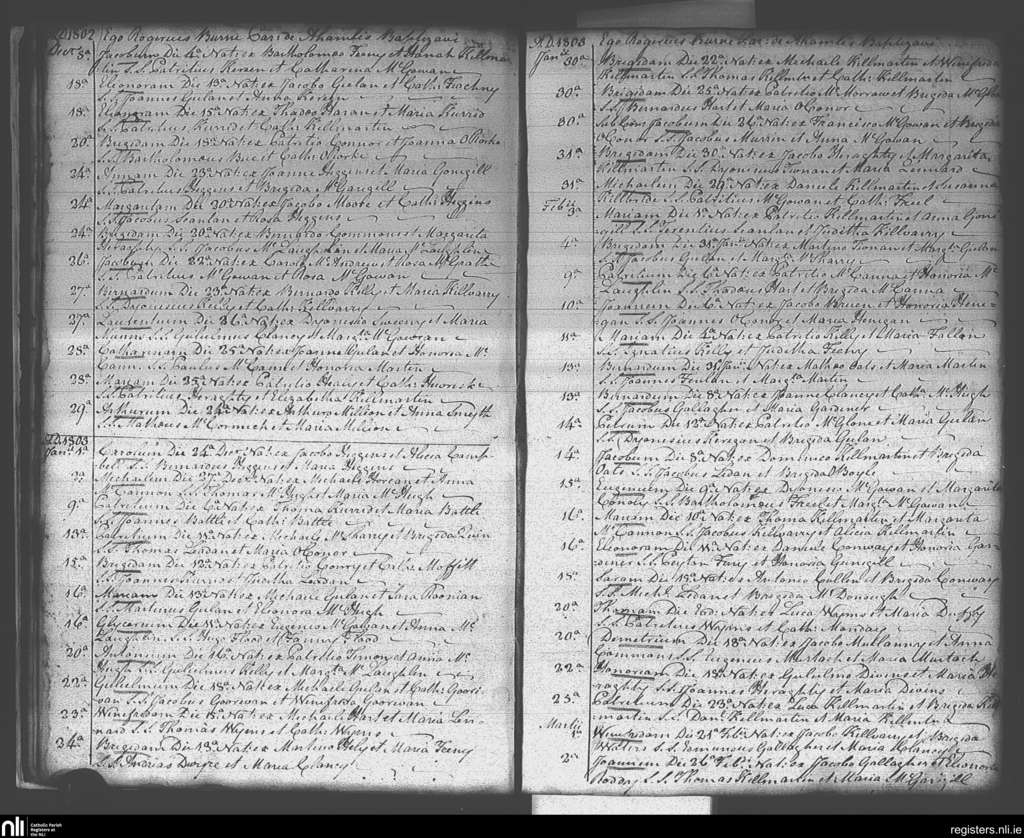 A.D. 1802 Ego Rogerius Burne Par: de Ahamlis Baptizavi
Decr 8a Jacobum Die 4a Nat: ex Bartholomeo Feeny et Honah Killmar
tin S.S. Patritius Kerem et Catharina McGowan
18a Eleonoram Die 13a Nat: ex Jacobo Gulan et Cath: Feeheny
S.S. Joannes Gulan et Anna
18a Die 15a Nat: ex Thadeo Haran et Maria Currid
S.S. Patritius Currid et Cath: Killmartin
20a Brigidam Die 18a Nat: ex Patritio Connor et Joanna ORorke
S.S. Bartholomeus et Cath: ORorke
24a Annam Die 23a Nat: ex Joanne Higgins et Maria Gonigill
S.S. Patritius Higgins et Brigida McGarigill
24a Margaritam Die 20a Nat: ex Jacobo Moore et Cath: Higgins
S.S. Jacobus Scanlan et Rosa Higgens
24a Brigidam Die 20a Nat: ex Bernardo Commons et Margarita
Heraghty S.S. Jacobus McLaughlin et Maria McLaughlin
26a Jacobum Die 22a Nat: ex McAndrew et Rosa McGarthe
S.S. Patritius McGowan et Rosa McGowan
27a Bernardum Die 23a Nat: ex Bernardo Kelly et Maria Killoary
S.S. Dyonesius Kelly et Cath: Killoary
27a Laurentium Die 26a Nat: ex Dyonesio Sweeny et Maria
S.S. Gulielmus Clancy et Margta McGowran
28a Catharinam Die 25a Nat: ex Joanne Gulan et Honoria Mc
Cann S.S. Paulus McCann et Honoria Martin
28a Mariam Die 25a Nat: ex Patritio et Cath:
S.S. Patritius Heraghty et Elizabetha Killmartin
29a Arthurum Die 24a Nat: ex Arthuro Million et Anna Smyth
S.S. Matheus McCormick et Maria Million
A.D. 1803
Janr 1a Die 24a Decr Nat: ex Jacobo Higgens et Alicia Camp
bell S.S. Bernardus Higgens et Maria Higgens
3a Michaelem Die 27a Decr Nat: ex Michaele Horean et Anna
McCannon S.S. Thomas McHugh et Maria McHugh
9a Patritium Die 6a Nat: ex Thoma Currid et Maria Battle
S.S. Joannes Battle et Cath: Battle
13a Patritium Die 11a Nat: ex Michaele McSharry et Brigida
S.S. Thomas Leadan et Maria OConor
15a Brigidam Die 12a Nat: ex Patritio Gowry et Moffitt
S.S. Joannes et Juditha Leadan
16a Mariam Die 13a Nat: ex Michaele Gulan et Sara Noonian
S.S. Martinus Gulan et Eleonora McHugh
16a Die 11a Nat: ex Eugenio McGowan et Anna Mc
Laughlin S.S. Hugo Flood et Fanny Flood
20a Antonium Die 16a Nat: ex Patritio Timony et Anna Mc
Hugh S.S. Gulielmus Kelly et Margta McLaughlin
22a Gulielmum Die 18a Nat: ex Michaele Gulan et Cath: Goore
wan S.S. Jacobus Goorewan et Winifrida Goorewan
23a Winifridam Die 18a Nat: ex Michaele Hart et Maria Len
nard S.S. Thomas Wynns et Cath: Wynns
24a Brigidam Die 18a Nat: ex Martino Hely et Maria Feeny
S.S. Andrias et Maria Clancy
A.D. 1803 Ego Rogerius Burne Par: de Ahamlis Baptizavi
Janr 30a Brigidam Die 22a Nat: ex Michaele Killmartin et Winifrida
Killmartin S.S. Thomas Killmartin et Cath: Killmartin
30a Brigidam Die 25a Nat: ex Patritio McMorrow et Brigida
S.S. Bernardus Hart et Maria OConor
30a Sub Con: Jacobum Die 26a Nat: ex Francisco McGowan et Brigida
OConor S.S. Jacobus Murrin et Anna McGowan
31a Brigidam Die 30a Nat: ex Jacobo Heraghty et Margarita
Killmartin S.S. Dyonesius Tionan et Maria Lennard
31a Michaelem Die 29a Nat: ex Daniele Killmartin et Susanna
Killbride S.S. Patritius McGowan et Cath: Freel
Febr 3a Mariam Die 1a Nat: ex Patritio Killmartin et Anna Goni
gill S.S. Terentius Scanlan et Juditha Killoarry
4a Brigidam Die 31a Janr Nat: ex Martino Tionan et Margta Gullan
S.S. Jacobus Gullan et Margta McSharry
9a Patritium Die 6a Nat: ex Patritio McCanna et Honoria Mc
Laughlin S.S. Thadeus Hart et Brigida McCanna
10a Joannem Die 6a Nat: ex Jacobo Bruen et Honoria Hene
gan S.S. Joannes OConor et Maria Henegan
11a Mariam Die 4a Nat: ex Patritio Kelly et Maria Fallon
S.S. Ignatius Kelly et Juditha Feeny
13a Bernardum Die 31a Janr Nat: ex Matheo Oats et Maria Martin
S.S. Joannes Feulan et Margta Martin
13a Bernardum Die 8a Nat: ex Joanne Clancy et Cath: McHugh
S.S. Jacobus Gallagher et Maria Gardener
14a Die 12a Nat: ex Patritio McGlone et Maria Gulan
S.S. Dyonesius Keregan et Brigida Gulan
14a Jacobum Die 8a Nat: ex Dominico Killmartin et Brigida
Oats S.S. Jacobus Lidan et Brigda OBoyle
15a Eugenium Die 9a Nat: ex Dyonesio McGowan et Margarita
Conoly S.S. Bartholomeus Freel et Margta McGowan
16a Mariam Die 10a Nat: ex Thoma Killmartin et Margarita
McCannon S.S. Jacobus Killoary et Alicia Killmartin
16a Eleonoram Die 11a Nat: ex Daniele Conway et Honoria Gar
diner S.S. Feny et Honoria Gunigill
18a Saram Die 15a Nat: ex Antonio Cullen et Brigida Conway
S.S. Michl Lidan et Brigida McDonough
20a Thomam Die Eod: Nat: ex Luca Wynns et Maria Duffy
S.S. Patritius Wynns et Cath: Monday
20a Demetrium Die 18a Nat: ex Jacobo Mullanny et Anna
Commons S.S. Eugenius Murtach et Maria Murtach
22a Honoriam Die 15a Nat: ex Gulielmo Divins et Maria He
raghty S.S. Joannes Heraghty et Maria Divins
25a Patritium Die 23a Nat: ex Luca Killmartin et Brigida Kill
martin S.S. Danl Killmartin et Maria Killmartin
Martii 1a Winifridam Die 21a Feb: Nat: ex Jacobo Killoary et Brigida
Waters S.S. Edmundus Gallagher et Maria Clancy
2a Joannem Die 26a Feb: Nat: ex Jacobo Gallagher et Eleonora
Roddy S.S. Thomas Killmartin et Maria McGarigill
nli Catholic Parish
Registers at
the NLI
registers.nli.ie